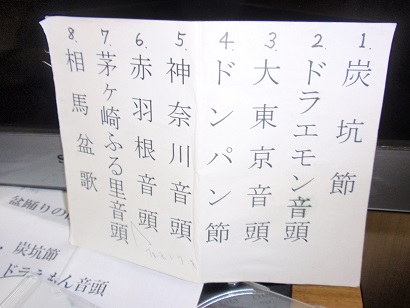 1. 炭坑節
2. ドラエモン音頭
3. 大東京音頭
4. ドンパン節
5. 神奈川音頭
6. 赤羽根音頭
7. 茅ヶ崎ふる里音頭
8. 相馬盆歌
盆踊りの
炭坑節
ドラえもん音頭